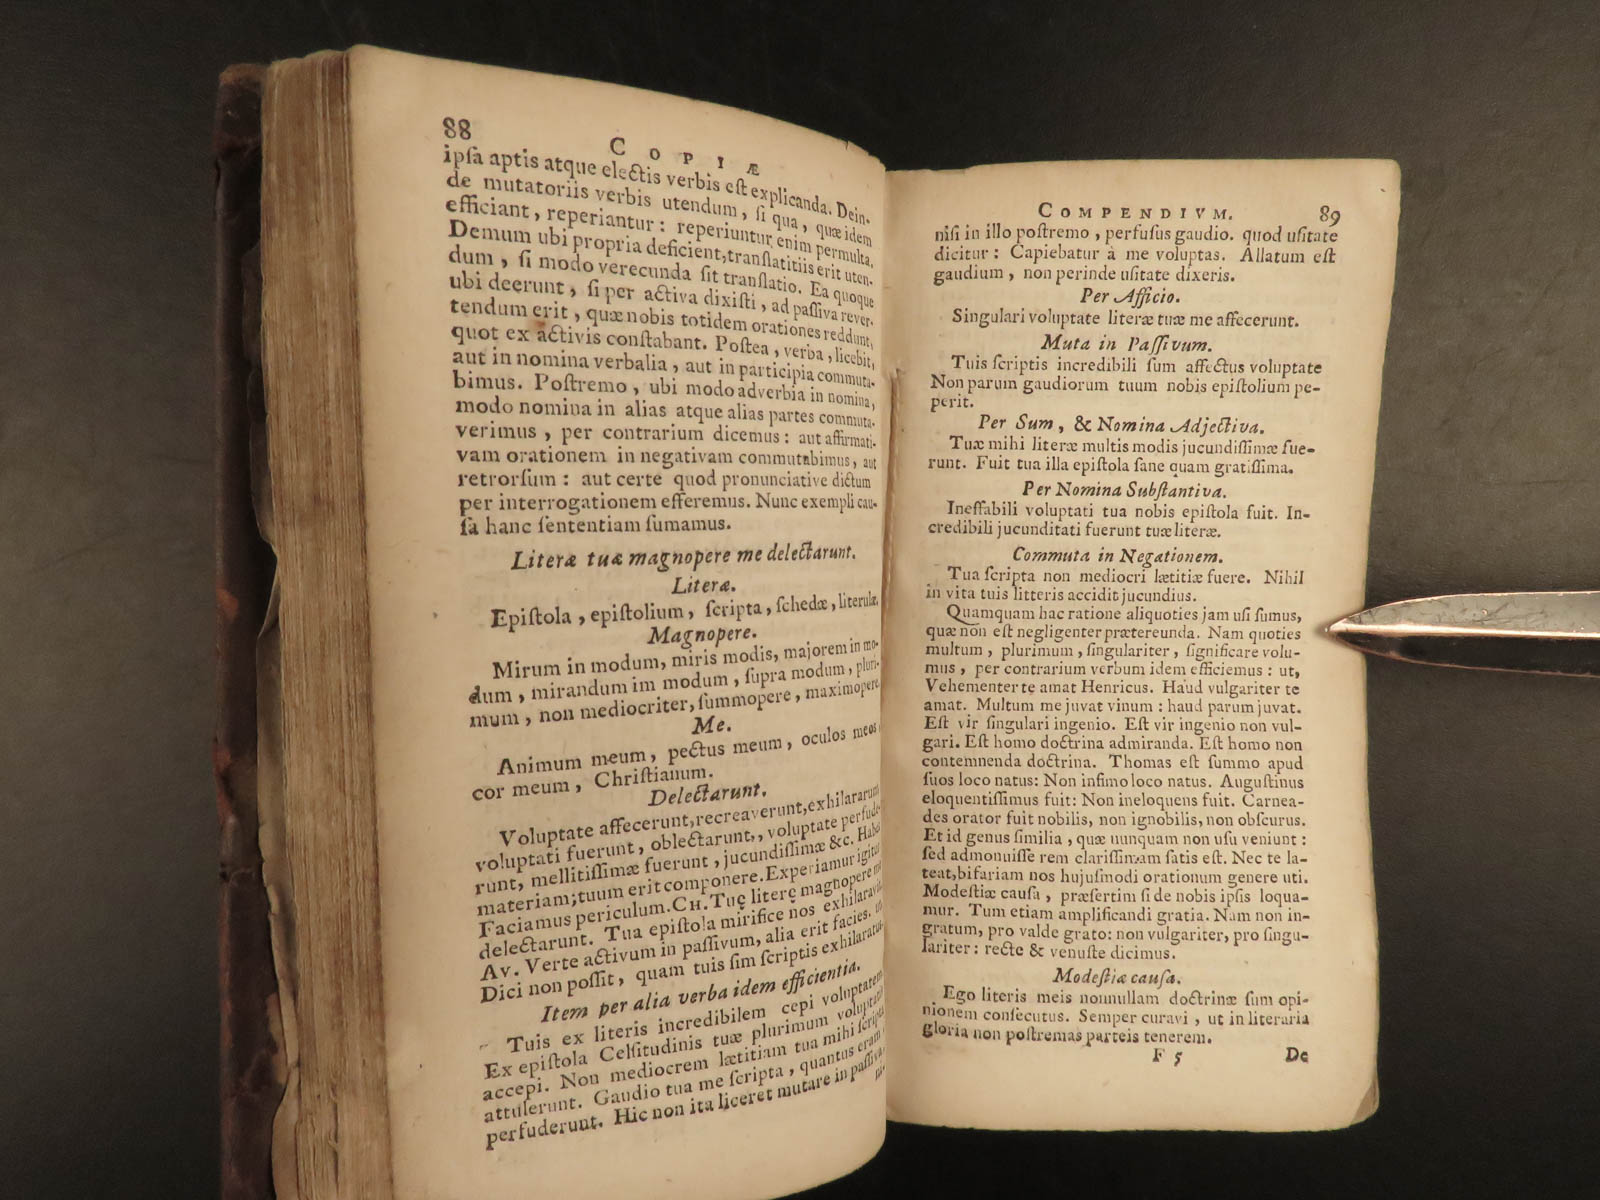 88
COPIÆ
ipſa aptis atque electis verbis eſt explicanda. Dein-
de mutatoriis verbis utendum, ſi qua, quæ idem
efficiant, reperiantur: reperiuntur enim permulta.
Demum ubi propria deficient, tranſlatitiis erit uten-
dum, ſi modo verecunda ſit tranſlatio. Ea quoque
ubi deerunt, ſi per activa dixiſti, ad paſſiva rever-
tendum erit, quæ nobis totidem orationes reddunt,
quot ex activis conſtabant. Poſtea, verba, licebit,
aut in nomina verbalia, aut in participia commuta-
bimus. Poſtremo, ubi modo adverbia in nomina,
modo nomina in alias atque alias partes commuta-
verimus, per contrarium dicemus: aut affirmati-
vam orationem in negativam commutabimus, aut
retrorſum: aut certe quod pronunciative dictum
per interrogationem efferemus. Nunc exempli cau-
ſa hanc ſententiam ſumamus.
Literæ tuæ magnopere me delectarunt.
Literæ.
Epiſtola, epiſtolium, ſcripta, ſchedæ, literulæ.
Magnopere.
Mirum in modum, miris modis, majorem in mo-
dum, mirandum im modum, ſupra modum, pluri-
mum, non mediocriter, ſummopere, maximopere.
Me.
Animum meum, pectus meum, oculos meos,
cor meum, Chriſtianum.
Delectarunt.
Voluptate affecerunt, recreaverunt, exhilararunt
voluptati fuerunt, oblectarunt,, voluptate perfude-
runt, mellitiſſimæ fuerunt, jucundiſſimæ &c. Habes
materiam; tuum erit componere. Experiamur igitur
Faciamus periculum. CH. Tuę literę magnopere me
delectarunt. Tua epiſtola mirifice nos exhilaravit.
AV. Verte activum in paſſivum, alia erit facies. Ut
Dici non poſſit, quam tuis ſim ſcriptis exhilaratus.
Item per alia verba idem efficientia.
Tuis ex literis incredibilem cepi voluptatem
Ex epiſtola Celſitudinis tuæ plurimum voluptatis
accepi. Non mediocrem lætitiam tua mihi ſcripta
attulerunt. Gaudio tua me ſcripta, quantus eram
perfuderunt. Hic non ita liceret mutare in paſſiva,
ni-
COMPENDIVM.
89
niſi in illo poſtremo, perfuſus gaudio. quod uſitate
dicitur: Capiebatur à me voluptas. Allatum eſt
gaudium, non perinde uſitate dixeris.
Per Afficio.
Singulari voluptate literæ tuæ me affecerunt.
Muta in Paſſivum.
Tuis ſcriptis incredibili ſum affectus voluptate
Non parum gaudiorum tuum nobis epiſtolium pe-
perit.
Per Sum, & Nomina Adjectiva.
Tuæ mihi literæ multis modis jucundiſſimæ fue-
runt. Fuit tua illa epiſtola ſane quam gratiſſima.
Per Nomina Subſtantiva.
Ineffabili voluptati tua nobis epiſtola fuit. In-
credibili jucunditati fuerunt tuæ literæ.
Commuta in Negationem.
Tua ſcripta non mediocri lætitiæ fuere. Nihil
in vita tuis litteris accidit jucundius.
Quamquam hac ratione aliquoties jam uſi ſumus,
quæ non eſt negligenter prætereunda. Nam quoties
multum, plurimum, ſingulariter, ſignificare volu-
mus, per contrarium verbum idem efficiemus: ut,
Vehementer te amat Henricus. Haud vulgariter te
amat. Multum me juvat vinum: haud parum juvat.
Eſt vir ſingulari ingenio. Eſt vir ingenio non vul-
gari. Eſt homo doctrina admiranda. Eſt homo non
contemnenda doctrina. Thomas eſt ſummo apud
ſuos loco natus: Non infimo loco natus. Auguſtinus
eloquentiſſimus fuit: Non ineloquens fuit. Carnea-
des orator fuit nobilis, non ignobilis, non obſcurus.
Et id genus ſimilia, quæ nunquam non uſu veniunt:
ſed admonuiſſe rem clariſſimam ſatis eſt. Nec te la-
teat, bifariam nos hujuſmodi orationum genere uti.
Modeſtiæ cauſa, præſertim ſi de nobis ipſis loqua-
mur. Tum etiam amplificandi gratia. Nam non in-
gratum, pro valde grato: non vulgariter, pro ſingu-
lariter: recte & venuſte dicimus.
Modeſtiæ cauſa.
Ego literis meis nonnullam doctrinæ ſum opi-
nionem conſecutus. Semper curavi, ut in literaria
gloria non poſtremas parteis tenerem.
F 5
De